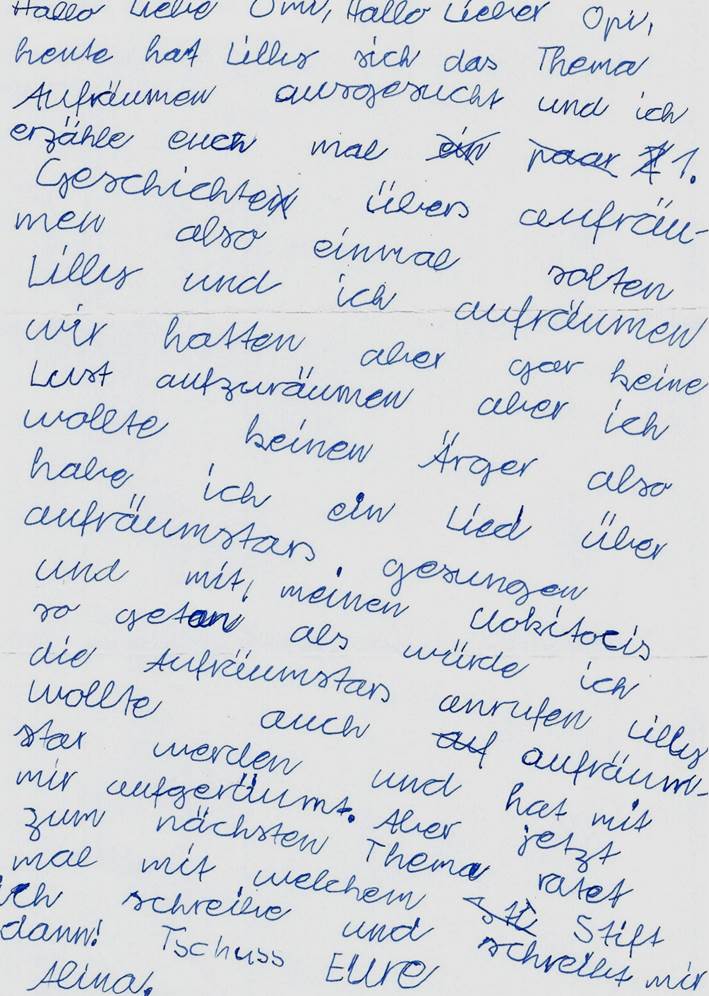 Hallo Liebe Omi, Hallo Lieber Opi,
heute hat Lilly sich das Thema
Aufräumen ausgesucht und ich
erzähle euch mal ein paar 1.
Geschichte übers aufräu-
men also einmal solten
Lilly und ich aufräumen
wir hatten aber gar keine
Lust aufzuräumen aber ich
wollte keinen Ärger also
habe ich ein Lied über
aufräumstars gesungen
und mit meinen
so getan als würde ich
die Aufräumstars anrufen Lilly
wollte auch auf aufräum-
star werden und hat mit
mir aufgeräumt. Aber jetzt
zum nächsten Thema ratet
mal mit welchem Sti Stift
ich schreibe und schreibt mir
dann! Tschuss EURE
Alina.